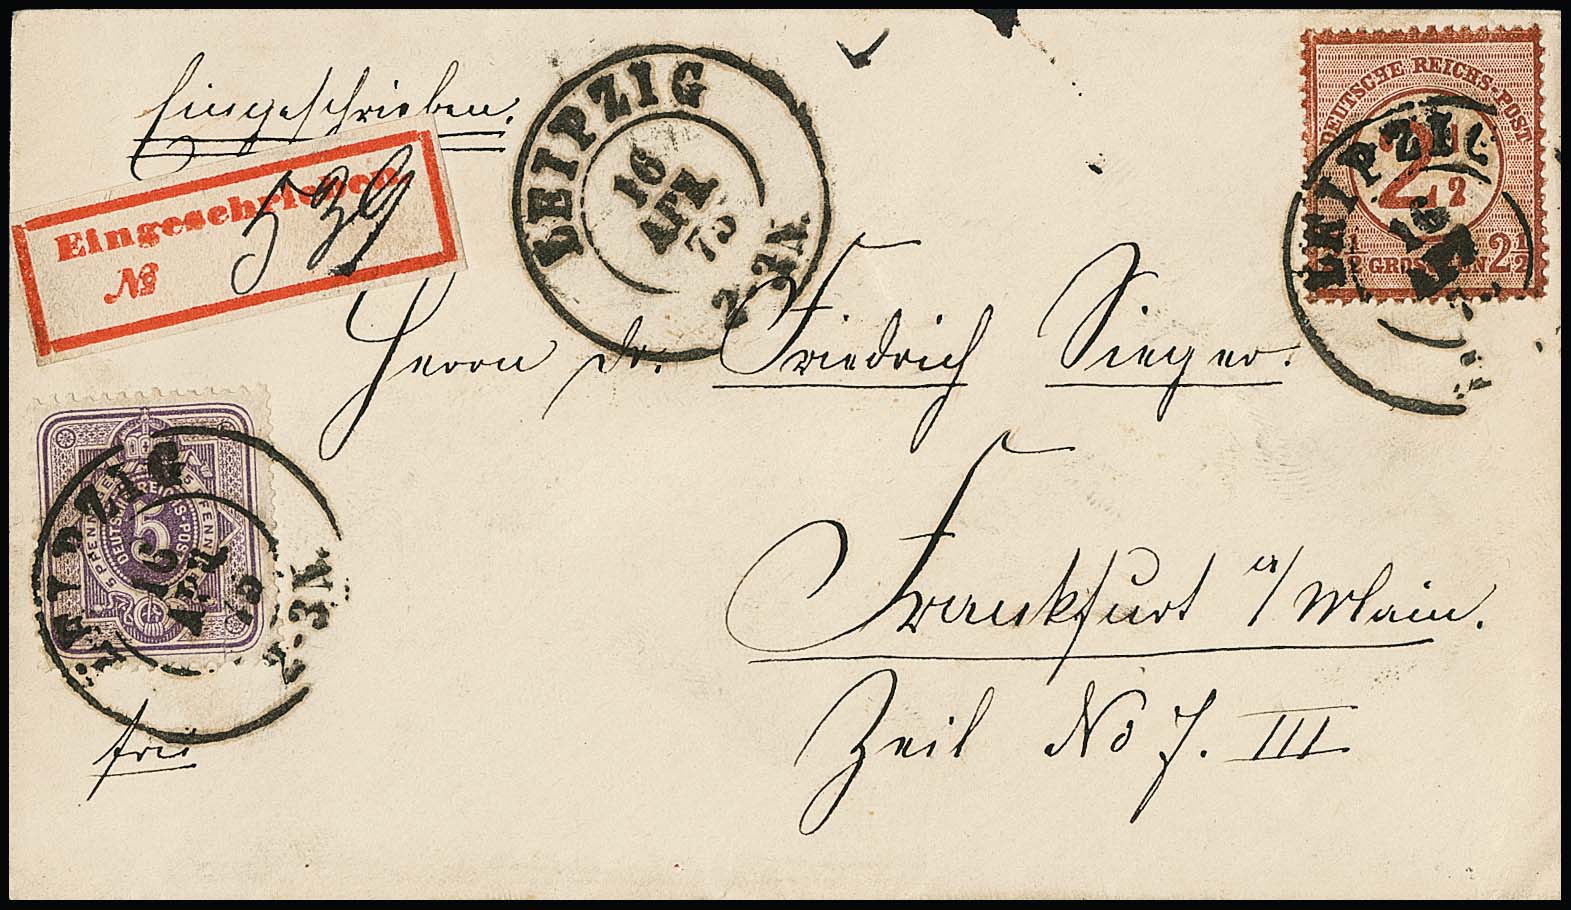 Eingeschrieben.
Eingeschrieben
№ 539
LEIPZIG
16
APR
75
2-3N.
DEUTSCHE REICHS-POST
2 1/2
2 1/2 GROSCHEN 2 1/2
LEIPZIG
16
APR
Herrn Dr. Friedrich Sieger.
5 PFENNIGE 5 PFENNIGE
DEUTSCHE REICHS-POST
5
LEIPZIG
16
APR
75
2-3N.
Frankfurt a/Main.
Zeil No 7. III
frei